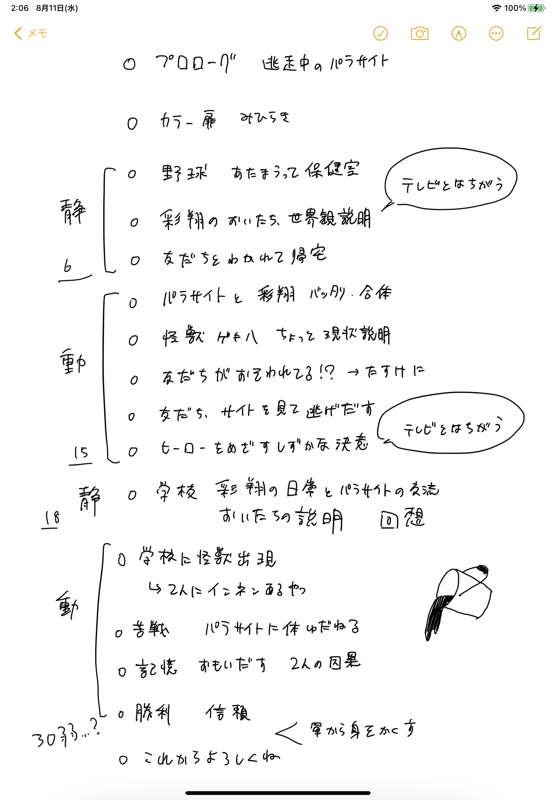 2:06 8月11日(水) 100%
メモ
○ プロローグ 逃走中のパラサイト
○ カラー扉 みひらき
○ 野球 あたまうって保健室
テレビとはちがう
静
○ 彩翔のおいたち、世界観説明
○ 友だちとわかれて帰宅
6
○ パラサイトと彩翔 バッタリ・合体
○ 怪獣 ゲキハ ちょっと現状説明
動
○ 友だちがおそわれてる!? →たすけに
○ 友だち、サイトを見て逃げだす
テレビとはちがう
○ ヒーローをめざすしずかな決意
15
静 ○ 学校 彩翔の日常とパラサイトの交流
18 おいたちの説明 回想
○ 学校に怪獣出現
↳ 2人にインネンあるやつ
動
○ 苦戦 パラサイトに体ゆだねる
○ 記憶 おもいだす 2人の因果
○ 勝利 信頼
30弱…?
軍から身をかくす
○ これからよろしくね